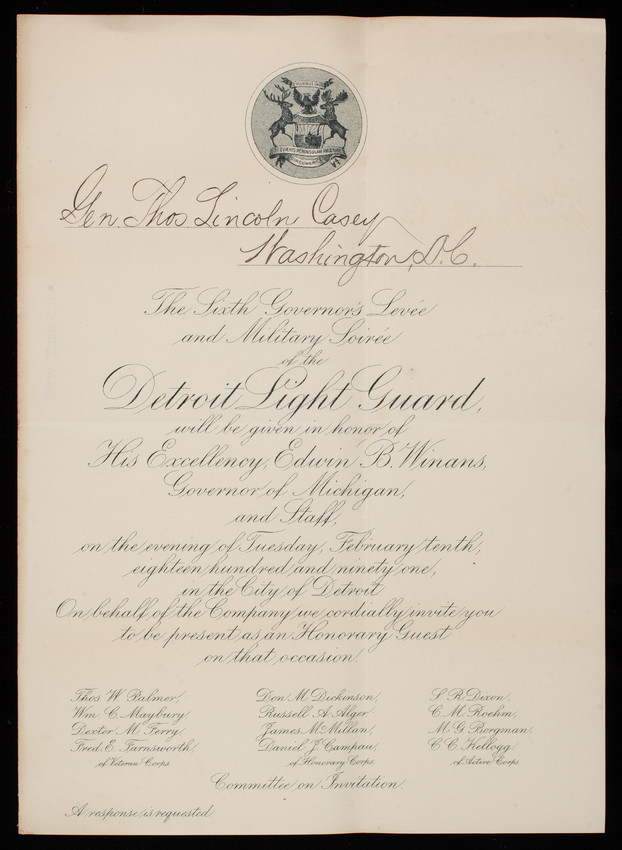 TUEBOR
SI QUÆRIS PENINSULAM AMŒNAM
CIRCUMSPICE
Gen. Thos Lincoln Casey
Washington, D.C.
The Sixth Governor's Levée
and Military Soirée
of the
Detroit Light Guard,
will be given in honor of
His Excellency, Edwin B. Winans,
Governor of Michigan,
and Staff,
on the evening of Tuesday, February tenth,
eighteen hundred and ninety one,
in the City of Detroit
On behalf of the Company we cordially invite you
to be present as an Honorary Guest
on that occasion.
Thos. W. Palmer,
Wm. C. Maybury,
Dexter M. Ferry,
Fred. E. Farnsworth,
of Veteran Corps
Don M. Dickinson,
Russell A. Alger,
James McMillan,
Daniel J. Campau,
of Honorary Corps
S. R. Dixon,
C. M. Roehm,
M. G. Borgman,
C. C. Kellogg,
of Active Corps.
Committee on Invitation.
A response is requested